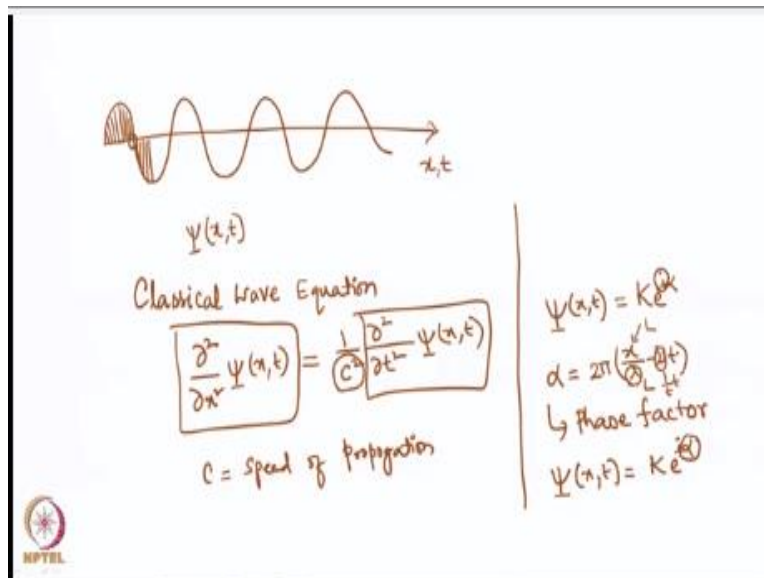 x,t
Ψ(x,t)
Classical Wave Equation
∂²/∂x² Ψ(x,t) = 1/c² ∂²/∂t² Ψ(x,t)
C = Speed of Propogation
Ψ(x,t) = K e^{iα}
L
α = 2π(x/λ - νt)
L
↳ Phase factor
Ψ(x,t) = K e^{iα}
NPTEL